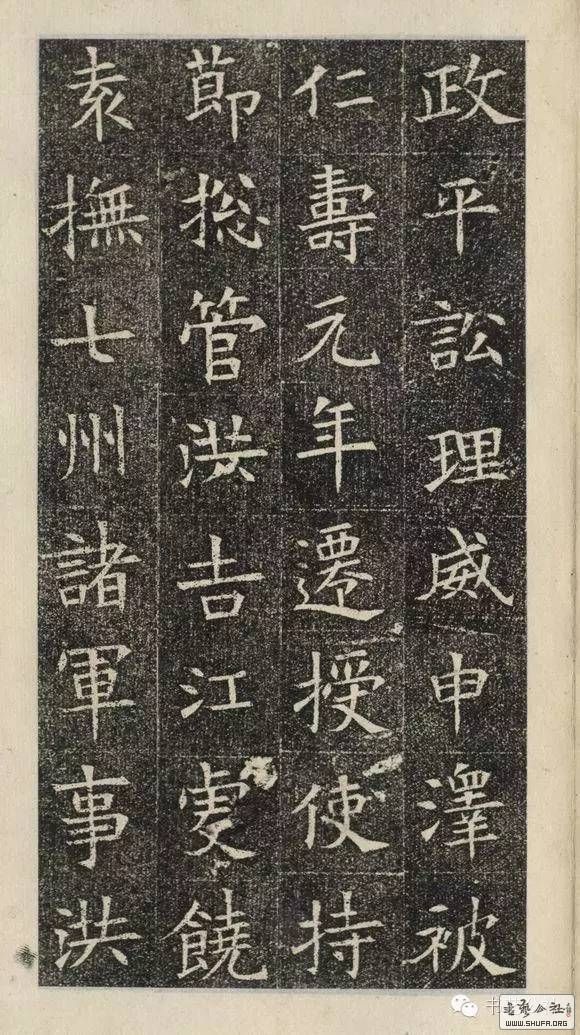 政平訟理威申澤被
仁壽元年遷授使持
節揔管洪吉江虔饒
袁撫七州諸軍事洪
WWW.SHUFA.ORG